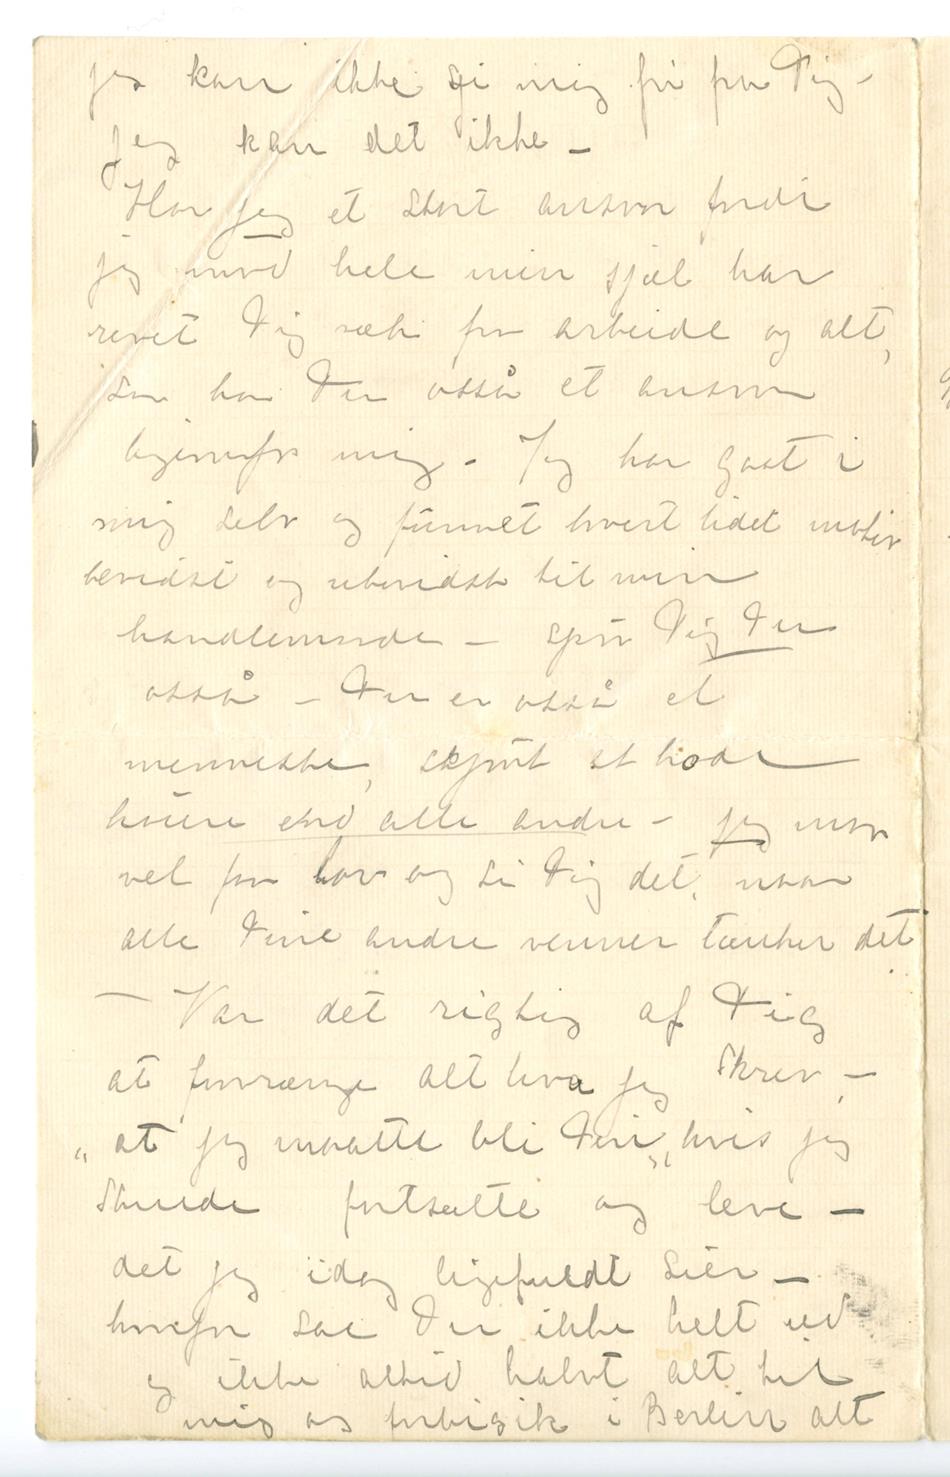 jeg kan ikke gi mig fri fra Dig –
jeg kan det ikke –
Har jeg et stort ansvar fordi
jeg med hele min sjæl har
revet Dig væk fra arbeide og alt,
saa har Du også et ansvar
ligeoverfor mig – Jeg har gaat i
mig selv og funnet hvert lidet motiv
bevidst og ubevidst til min
handlemaade – spør Dig Du
også – Du er også et
menneske, skjønt et hode
høiere end alle andre – jeg maa
vel faa lov og si Dig det, naar
alle Dine andre venner tænker det
– Var det rigtig af Dig
at forvrænge alt hva jeg skrev, –
„at jeg maatte bli Din", hvis jeg
skulde fortsætte og leve –
det jeg idag ligefuldt sier –
hvorfor saa Du ikke helt ud
og ikke altid halvt alt hit
mig og forbigik i Berlin alt